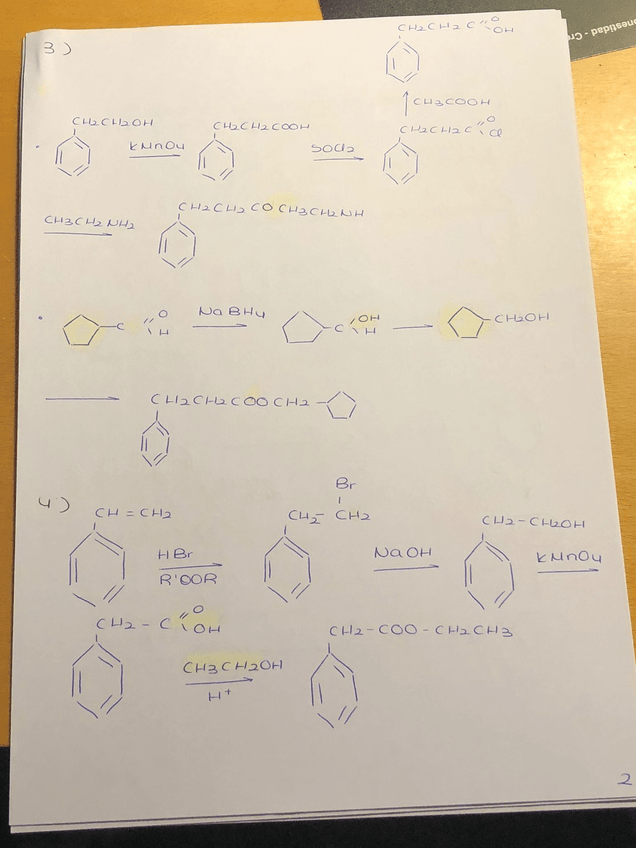 onestidad - Cr
3)
CH2CH2C=O OH
CH3COOH
CH2CH2OH KMnO4 CH2CH2COOH SOCl2 CH2CH2C=O Cl
CH3CH2NH2 CH2CH2COCH3CH2NH
C=O H NaBH4 C OH H CH2OH
CH2CH2COOCH2
4)
CH=CH2 HBr R'OOR CH2-CH2 Br NaOH CH2-CH2OH KMnO4
CH2-C=O OH CH3CH2OH H+ CH2-COO-CH2CH3
2